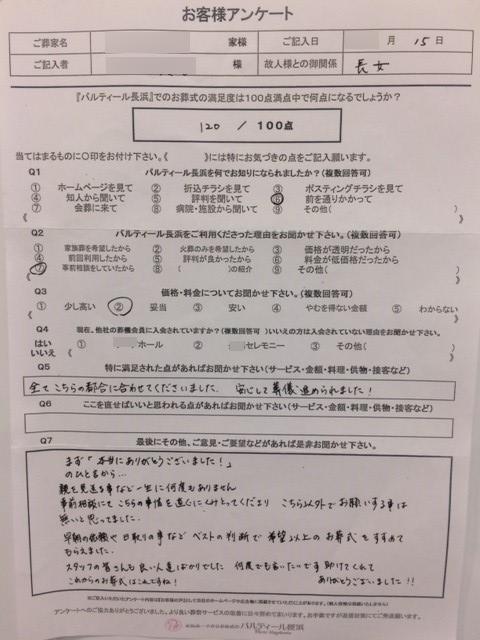 お客様アンケート
ご葬家名 家様 ご記入日 月 15日
ご記入者 様 故人様との御関係 長女
『バルティール長浜』でのお葬式の満足度は100点満点中で何点になるでしょうか?
120 / 100点
当てはまるものに〇印をお付け下さい。《 》には特にお気づきの点をご記入願います。
Q1 バルティール長浜を何でお知りになられましたか?(複数回答可)
① ホームページを見て ② 折込チラシを見て ③ ポスティングチラシを見て
④ 知人から聞いて ⑤ 評判を聞いて ⑥ 前を通りかかって
⑦ 会葬に来て ⑧ 病院・施設から聞いて ⑨ その他( )
《 》
Q2 バルティール長浜をご利用くださった理由をお聞かせ下さい。(複数回答可)
① 家族葬を希望したから ② 火葬のみを希望したから ③ 価格が透明だったから
④ 前回利用したから ⑤ 評判が良かったから ⑥ 料金が低価格だったから
⑦ 事前相談をしていたから ⑧ ( )の紹介 ⑨ その他( )
《 》
Q3 価格・料金についてお聞かせ下さい。(複数回答可)
① 少し高い ② 妥当 ③ 安い ④ やむを得ない金額 ⑤ わからない
《 》
Q4 現在、他社の葬儀会員に入会されていますか?(複数回答可 )いいえの方は入会されていない理由をお聞かせ下さい。
はい ① ホール ② セレモニー ③ その他( )
いいえ 《 》
Q5 特に満足された点があればお聞かせ下さい(サービス・金額・料理・供物・接客など)
全てこちらの都合に合わせてくださいました。 安心して葬儀進められました!
Q6 ここを直せばいいと思われる点があればお聞かせ下さい(サービス・金額・料理・供物・接客など)
Q7 最後にその他、ご意見・ご要望などがあれば是非お聞かせ下さい。
まず「本当にありがとうございました!」
のひと言から…
親を見送る事など一生に何度もありません
事前相談にてこちらの事情を親心にくみとってくださり こちら以外でお願いする事は
無いと思ってました。
早朝の依頼や日取りの事など ベストの判断で希望以上のお葬式をすすめて
もらえました。
スタッフの皆さんも良い人達ばかりでした 何度でも言いたいです 助けてくれて
これからのお葬式はこれですね! ありがとうございました!!
アンケートへのご協力ありがとうございました。より良い葬祭サービスの改善に日々努めてまいります。お手数ですが返信封筒にてご発送願います。
バルティール長浜